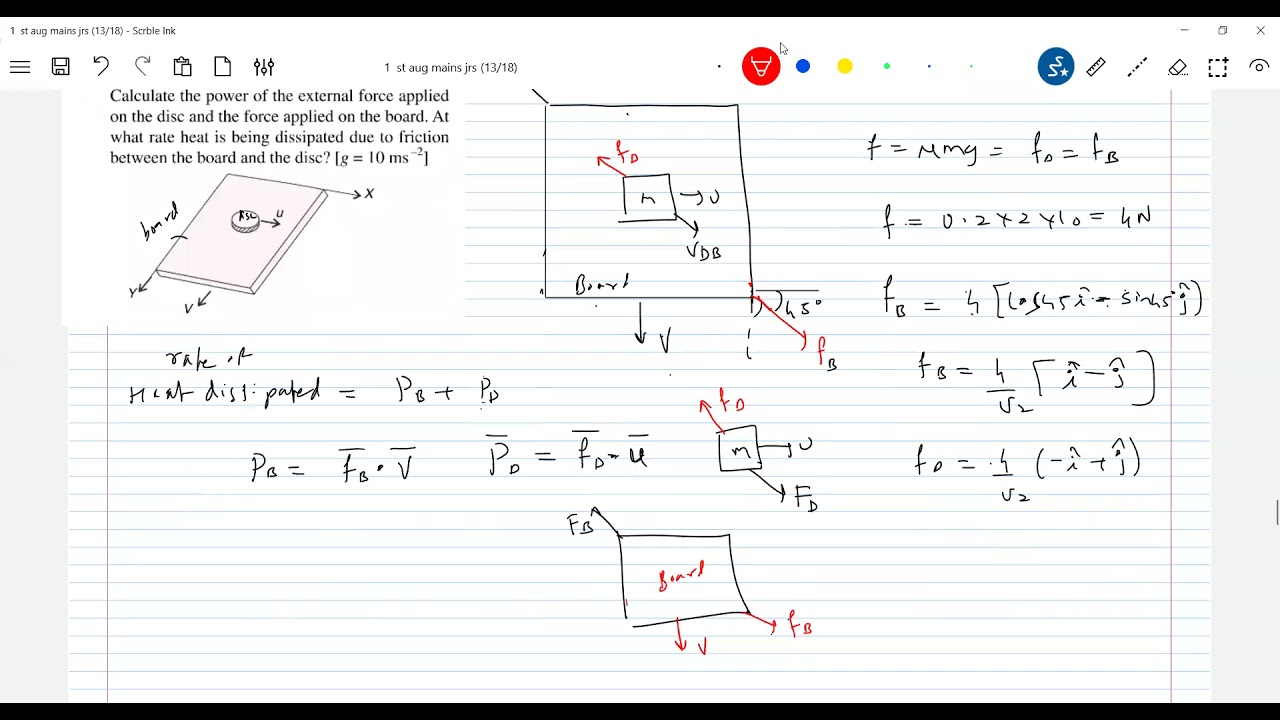 1 st aug mains jrs (13/18) - Scrble Ink
1 st aug mains jrs (13/18)
Calculate the power of the external force applied
on the disc and the force applied on the board. At
what rate heat is being dissipated due to friction
between the board and the disc? [g = 10 ms⁻²]
X
board
Disc
u
Y
V
f_D
m
υ
V_DB
Board
V
45°
f_B
f = μmg = f_D = f_B
f = 0.2×2×10 = 4N
f_B = 4 [cos45 î - sin45 ĵ]
f_B = 4/√2 [î - ĵ]
f_D = 4/√2 (-î + ĵ)
rate of
Heat dissipated = P_B + P_D
P_B = F̅_B · V̅
P̅_D = f̅_D · u̅
f_D
m
υ
F_D
F_B
Board
f_B
V